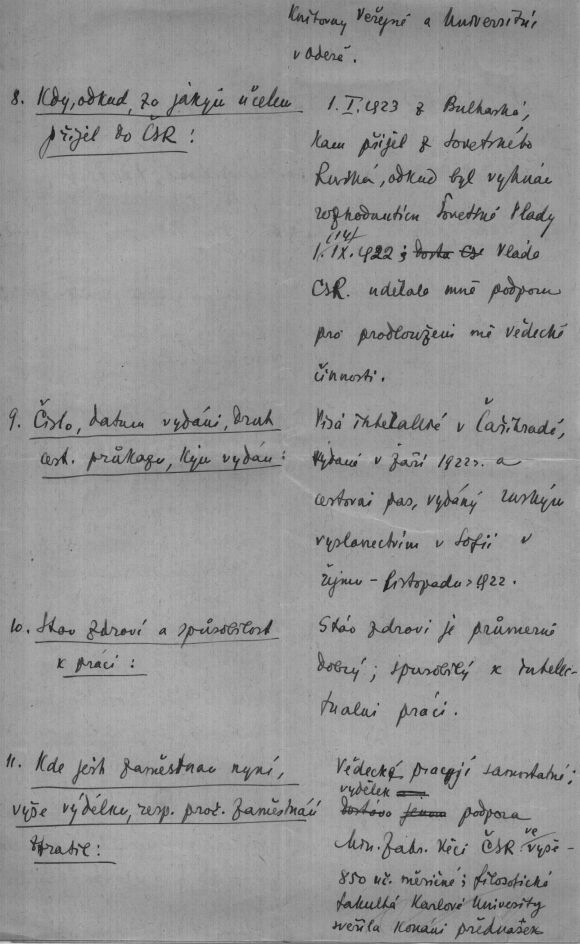 Knihovny Veřejné a Universitní
v Oděse.
8. Kdy, odkud, za jakým účelem
přijel do ČSR:
1. I. 1923 z Bulharska,
kam přijel z Sovetského
Ruska, odkud byl vyhnán
rozhodnutím Sovetské Vlady
(14)
1. IX. 1922; Vláda
ČSR. udělala mně podporu
pro prodloužení mé vědecké
činnosti.
9. Číslo, datum vydání, druh
cest. průkazu, kým vydán:
Visá v Cařihradě,
vydané v září 1922 r. a
cestovní pas, vydáný ruským
vyslanectvím v Sofii v
říjmu - listopadu 1922.
10. Stav zdraví a spůsobilost
k práci:
Stav zdraví je průmerně
dobrý; spusobilý k intelec-
tualní práci.
11. Kde jest zaměstnán nyní,
výše výdělku, resp. proč zaměstnání
ztratil:
Vědecká pracuji samostatně;
výdělek
podpora
Min. Zahr. Věcí ČSR ve výše -
850 kč. měsíčně; filosofická
fakulta Karlové University
svěřila konání přednášek